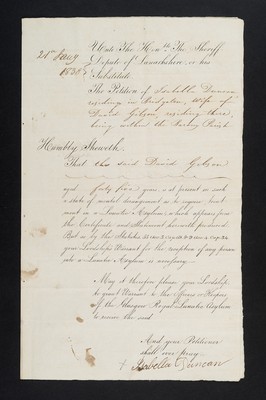 21st Jany
1838
Unto The Honble The Sheriff
Depute of Lanarkshire or his
Substitute
The Petition of Isabella Duncan
residing in Bridgeton, Wife of
David Gibson residing there,
being within the Barony Parish
Humbly Sheweth
That the said David Gibson
aged forty five years is at present in such
a state of mental derangement as to require treat
ment in a Lunatic Asylum which appears from
the Certificate and Statement herewith produced
But as by the Statutes
your Lordships Warrant for the reception of any person
into a Lunatic Asylum is necessary
May it therefore please your Lordship
to grant Warrant to the House or Keeper
of the Glasgow Royal Lunatic Asylum
to receive the said
And your Petitioner
shall ever pray
Isabella Duncan